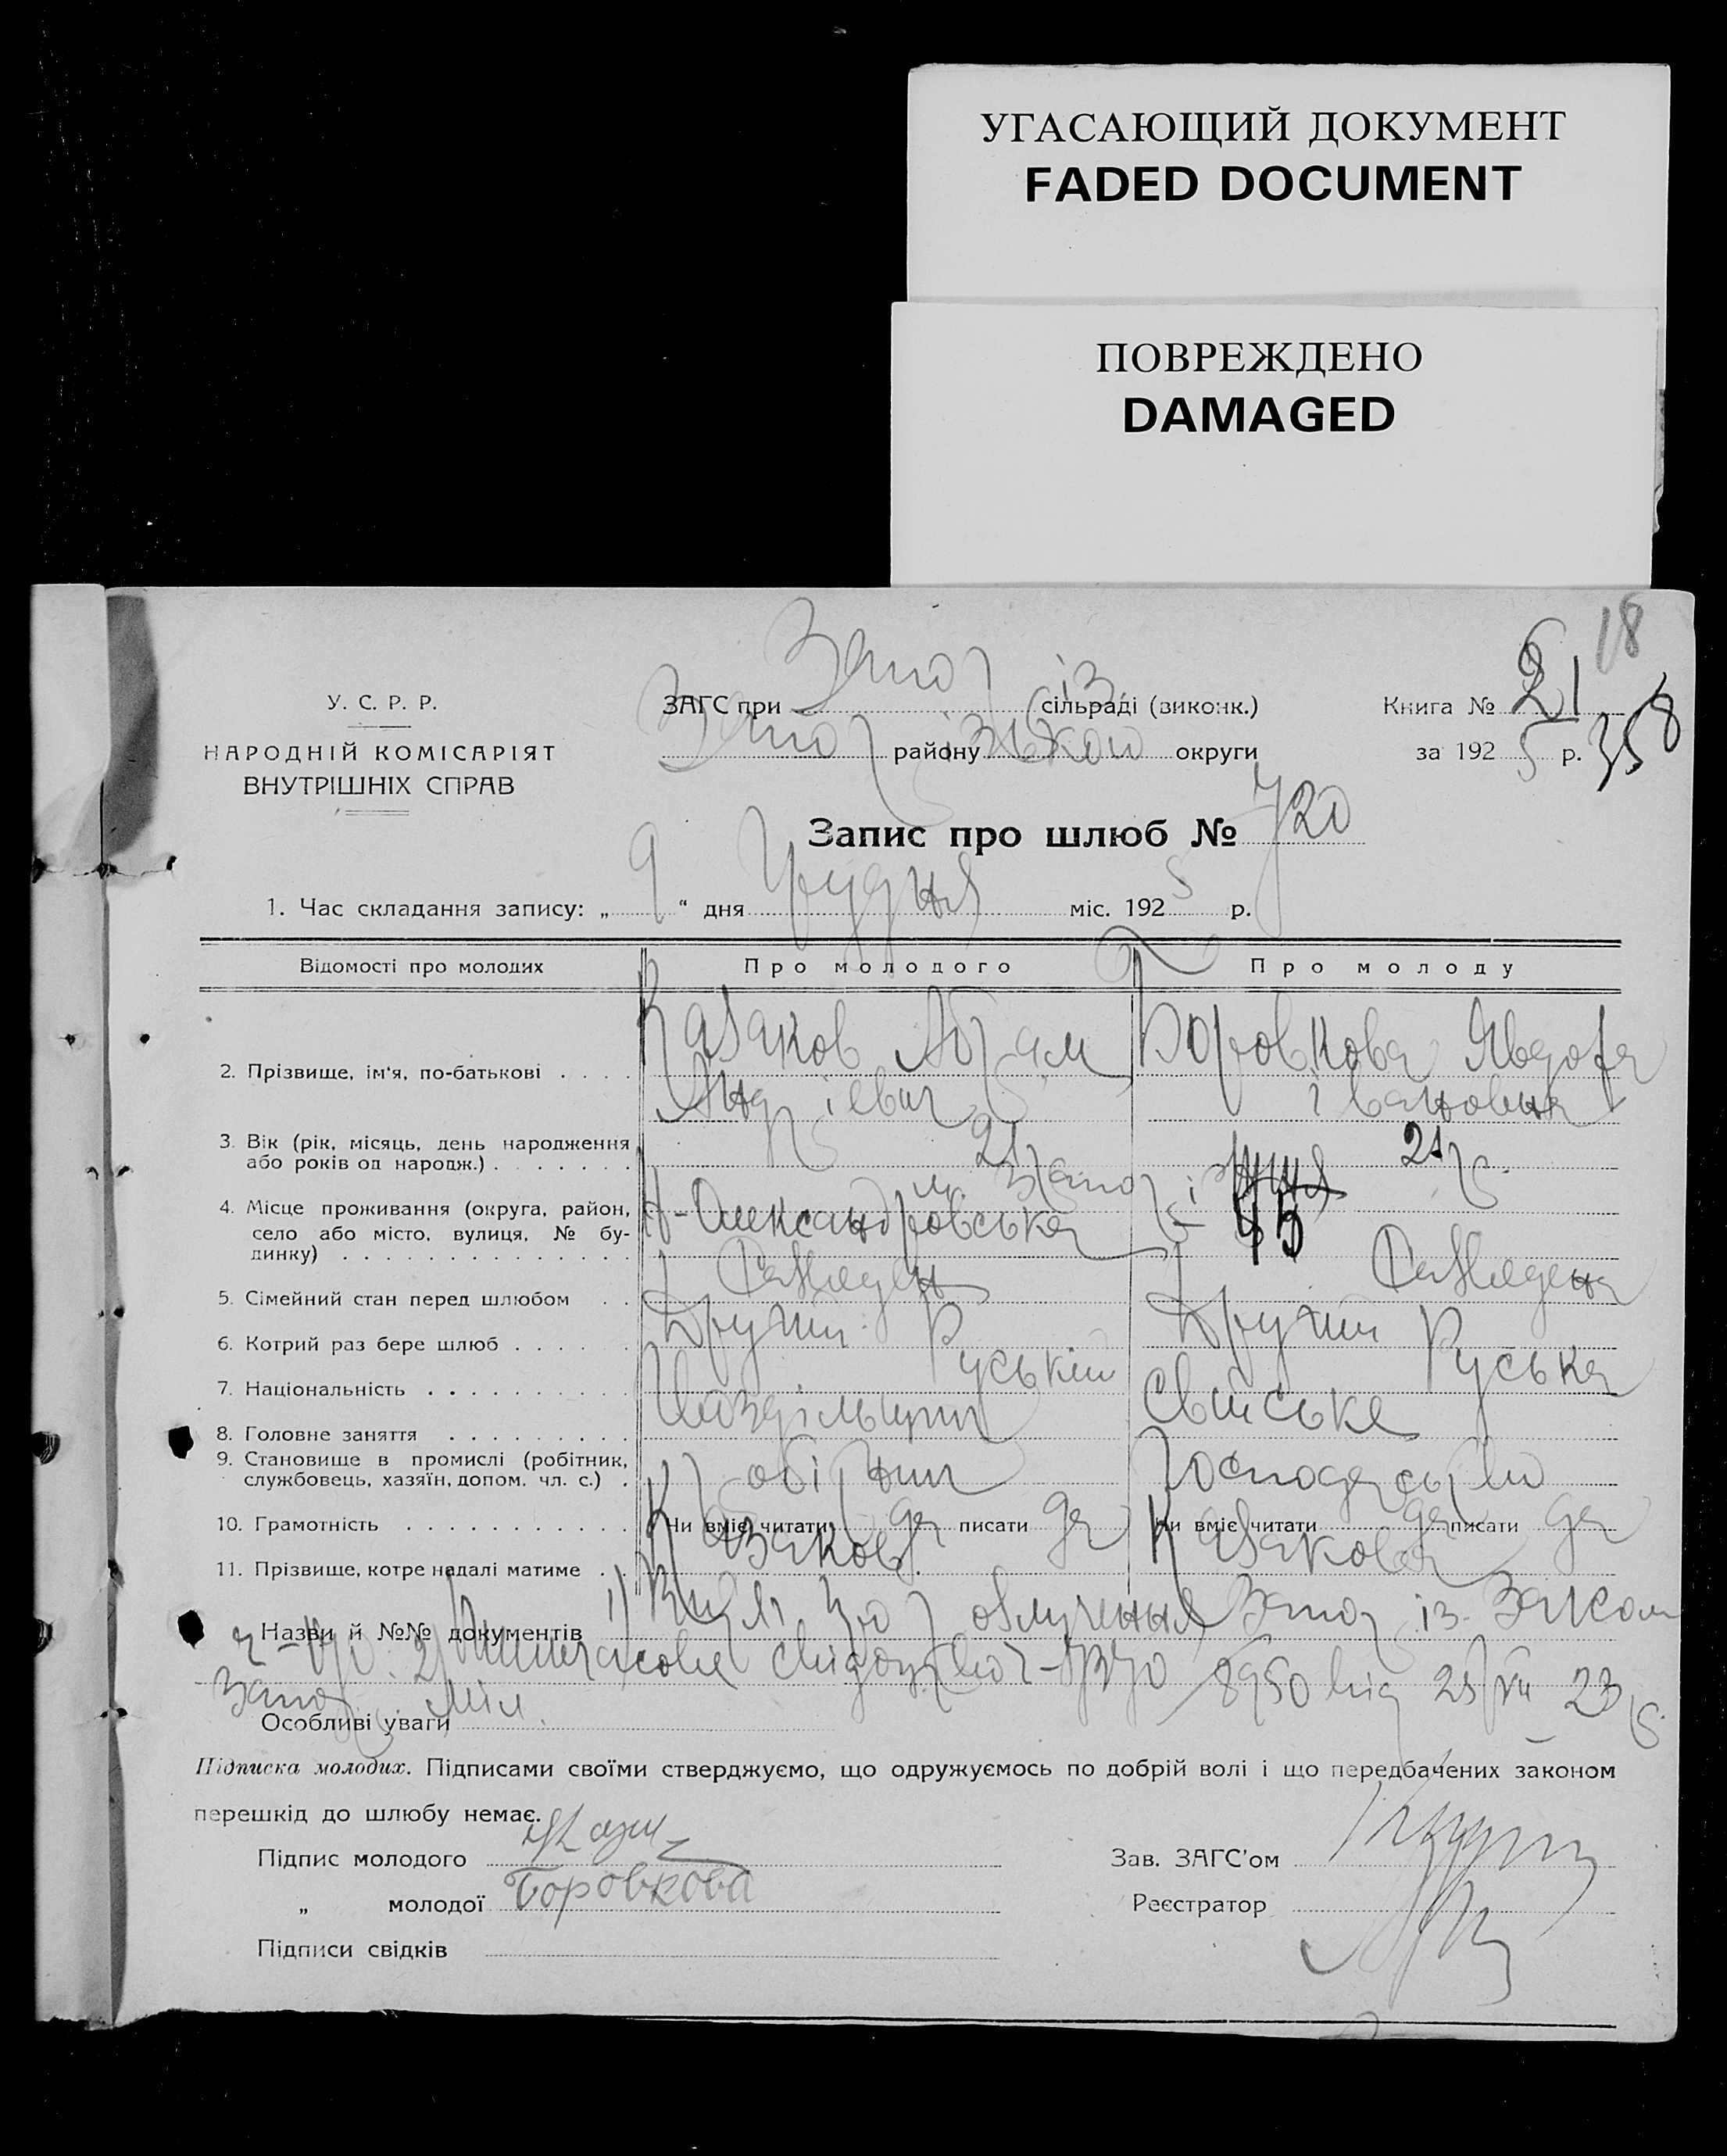 УГАСАЮЩИЙ ДОКУМЕНТ
FADED DOCUMENT
ПОВРЕЖДЕНО
DAMAGED
18
У. С. Р. Р.
НАРОДНІЙ КОМІСАРІЯТ
ВНУТРІШНІХ СПРАВ
ЗАГС при Запоріз. сільраді (виконк.)
Запор району округи
Книга № 21
за 1925 р. 358
Запис про шлюб № 720
1. Час складання запису: „ 9 “ дня Грудня міс. 1925 р.
Відомості про молодих Про молодого Про молоду
2. Прізвище, ім‘я, по-батькові . . . . Казаков Абрам Андрієвич Боровкова Явдоха Івановна
3. Вік (рік, місяць, день народження або років од народж.) . . . . . . . 21 21 р.
4. Місце проживання (округа, район, село або місто, вулиця, № будинку) . . . . . . . . . . . . . . . м. Запор Олександровська 45
5. Сімейний стан перед шлюбом . . Розведен Розведена
6. Котрий раз бере шлюб . . . . . . Другий Другий
7. Національність . . . . . . . . . . Руський Руська
8. Головне заняття . . . . . . . . . Свийське
9. Становище в промислі (робітник, службовець, хазяїн, допом. чл. с.) . Робітник Господарство
10. Грамотність . . . . . . . . . . . . Чи вміє читати да писати да Чи вміє читати да писати да
11. Прізвище, котре надалі матиме . . Казаков Казакова
Назви й №№ документів 1) розлучення Запоріз.
2) Тимчасове свідоцтво 8950 від 25/VII 23 р.
Запор. Міл.
Особливі уваги
Підписка молодих. Підписами своїми стверджуємо, що одружуємось по добрій волі і що передбачених законом
перешкід до шлюбу немає.
Підпис молодого
Зав. ЗАГС’ом
„ молодої Боровкова
Реєстратор
Підписи свідків